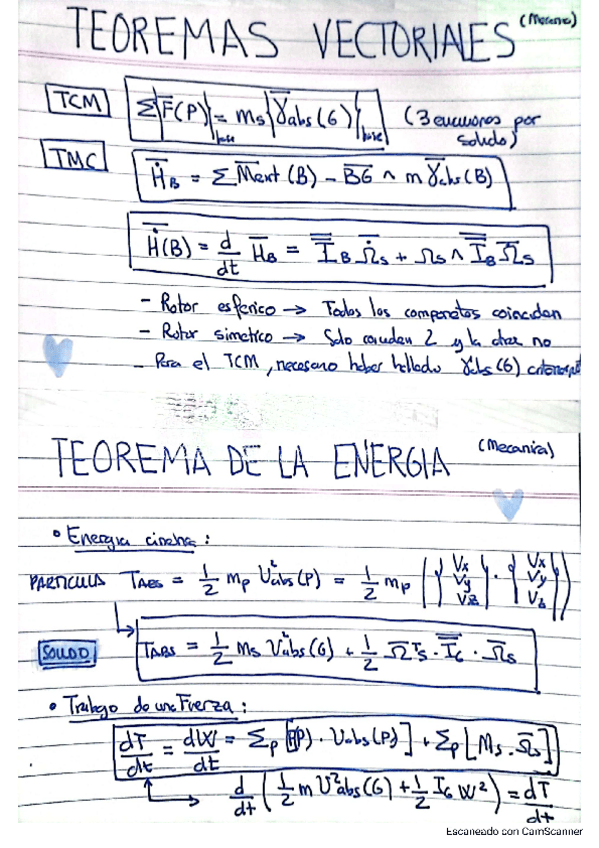 TEOREMAS VECTORIALES (Mecanica)
TCM Σ{F̄(P)}base = ms{γ̄abs(G)}base (3 ecuaciones por
solido)
TMC Ḣ̄B = ΣM̄ext(B) - B̄Ḡ ∧ m γ̄abs(B)
Ḣ̄(B) = d/dt H̄B = I̿B Ω̄̇s + Ωs ∧ I̿B Ω̄s
- Rotor esferico → Todas las componentes coinciden
- Rotor simetrico → Solo coinciden 2 y la otra no
- Para el TCM, necesario haber hallado γabs(G)
TEOREMA DE LA ENERGIA (Mecanica)
• Energia cinetica:
PARTICULA TABS = 1/2 mp V²abs(P) = 1/2 mp ({Vx Vy Vz} · {Vx Vy Vz})
SOLIDO TABS = 1/2 ms V²abs(G) + 1/2 Ω̄ᵀs · I̿G · Ω̄s
• Trabajo de una Fuerza:
dT/dt = dW/dt = Σp [F(P) · Vabs(P)] + Σp [Ms · Ω̄s]
d/dt (1/2 m V²abs(G) + 1/2 IG W²) = dT/dt
Escaneado con CamScanner